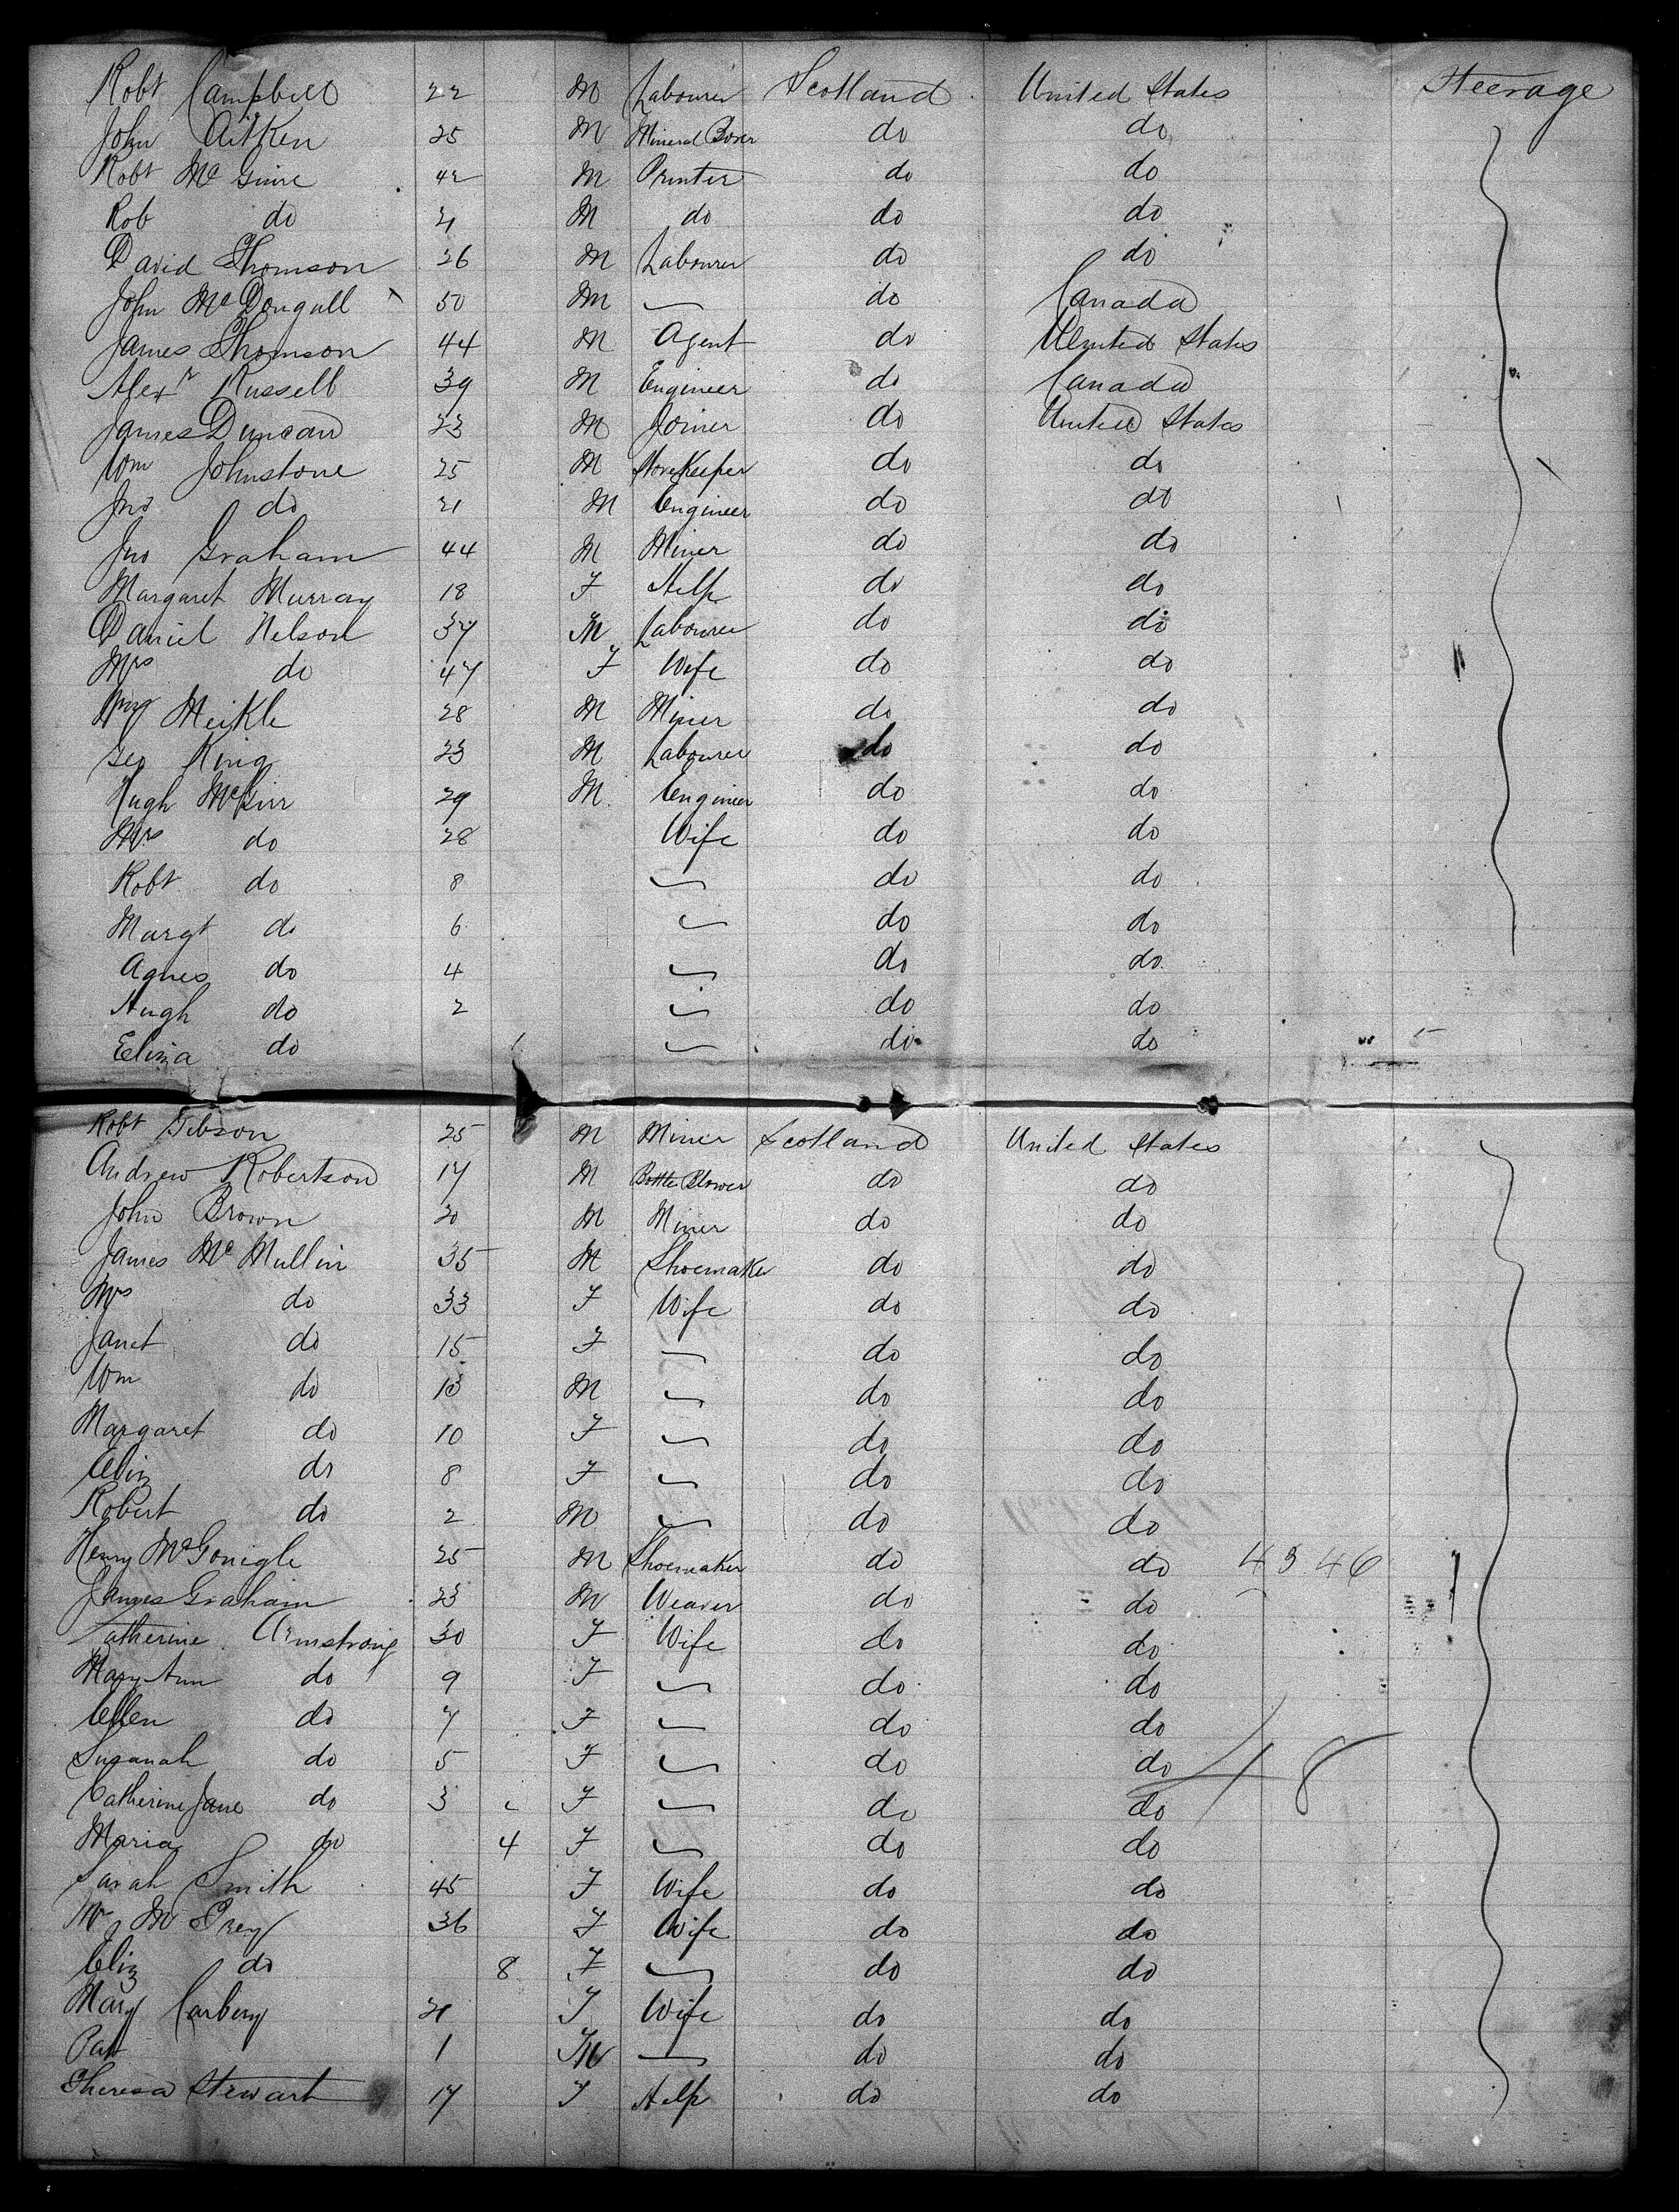 Robt Campbell 22 M Labourer Scotland United States Steerage
John Aitken 25 M Mineral Borer do do
Robt Mc Guire 42 M Printer do do
Rob do 21 M do do do
David Thomson 26 M Labourer do do
John McDougall 50 M — do Canada
James Thomson 44 M Agent do United States
Alexr Russell 39 M Engineer do Canada
James Duncan 23 M Joiner do United States
Wm Johnstone 25 M StoreKeeper do do
Jno do 21 M Engineer do do
Jno Graham 44 M Miner do do
Margaret Murray 18 F Help do do
Daniel Nelson 37 M Labourer do do
Mrs do 47 F Wife do do
Wm Meikle 28 M Miner do do
Geo King 23 M Labourer do do
Hugh McGirr 29 M Engineer do do
Mrs do 28 Wife do do
Robt do 8 — do do
Margt do 6 — do do
Agnes do 4 — do do
Hugh do 2 — do do
Eliza do — do do
Robt Gibson 25 M Miner Scotland United States
Andrew Robertson 17 M Bottle Blower do do
John Brown 30 M Miner do do
James Mc Mullin 35 M Shoemaker do do
Mrs do 33 F Wife do do
Janet do 15 F — do do
Wm do 13 M — do do
Margaret do 10 F — do do
Eliz do 8 F — do do
Robert do 2 M — do do
Henry McGonigle 25 M Shoemaker do do 4346
James Graham 23 M Weaver do do
Catherine Armstrong 30 F Wife do do
Mary Ann do 9 F — do do
Ellen do 7 F — do do
Susanah do 5 F — do do 48
Catherine Jane do 3 F — do do
Maria do 4 F — do do
Sarah Smith 45 F Wife do do
36 F Wife do do
Eliz do 8 F — do do
Mary Carbery 21 F Wife do do
Pat 1 M — do do
Theresa Stewart 17 F Help do do